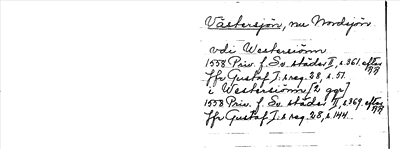 Västersjön, nu Nordsjön
vdi Westersiönn
1558 Priv. f. Sv. städer II, s. 361. efter
Jfr Gustaf I:s reg. 28, s. 51.
i Westersiönn [2 ggr]
1558 Priv. f. Sv. städer II, s. 369. efter
Jfr Gustaf I:s reg. 28, s. 144.